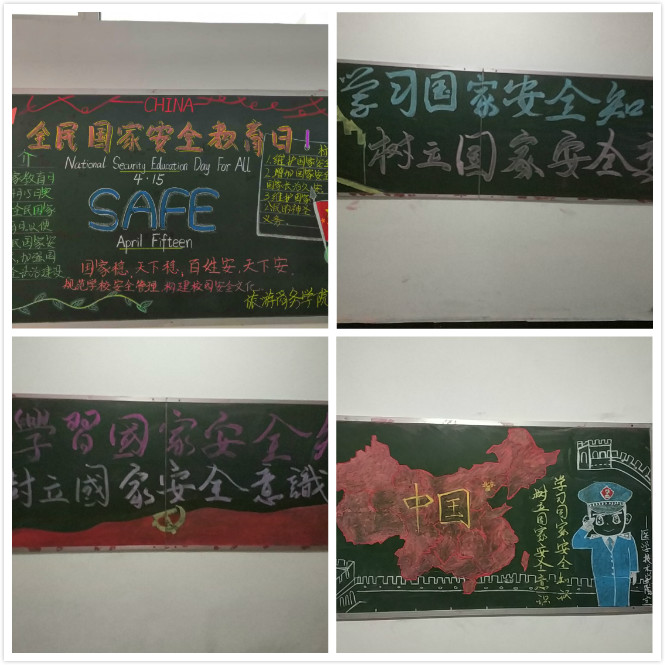 CHINA
全民国家安全教育日
National Security Education Day For All
4·15
SAFE
April Fifteen
国家稳、天下稳,百姓安,天下安
规范学校安全管理 构建校园安全文化
旅游商务学院
介
全民国家
1.维护国家安全
2.增加国家安全
3.维护国家
义务.
学习国家安全知
树立国家安全意
學習國家安全
树立國家安全意識
中国
学习国家安全知识
树立国家安全意识